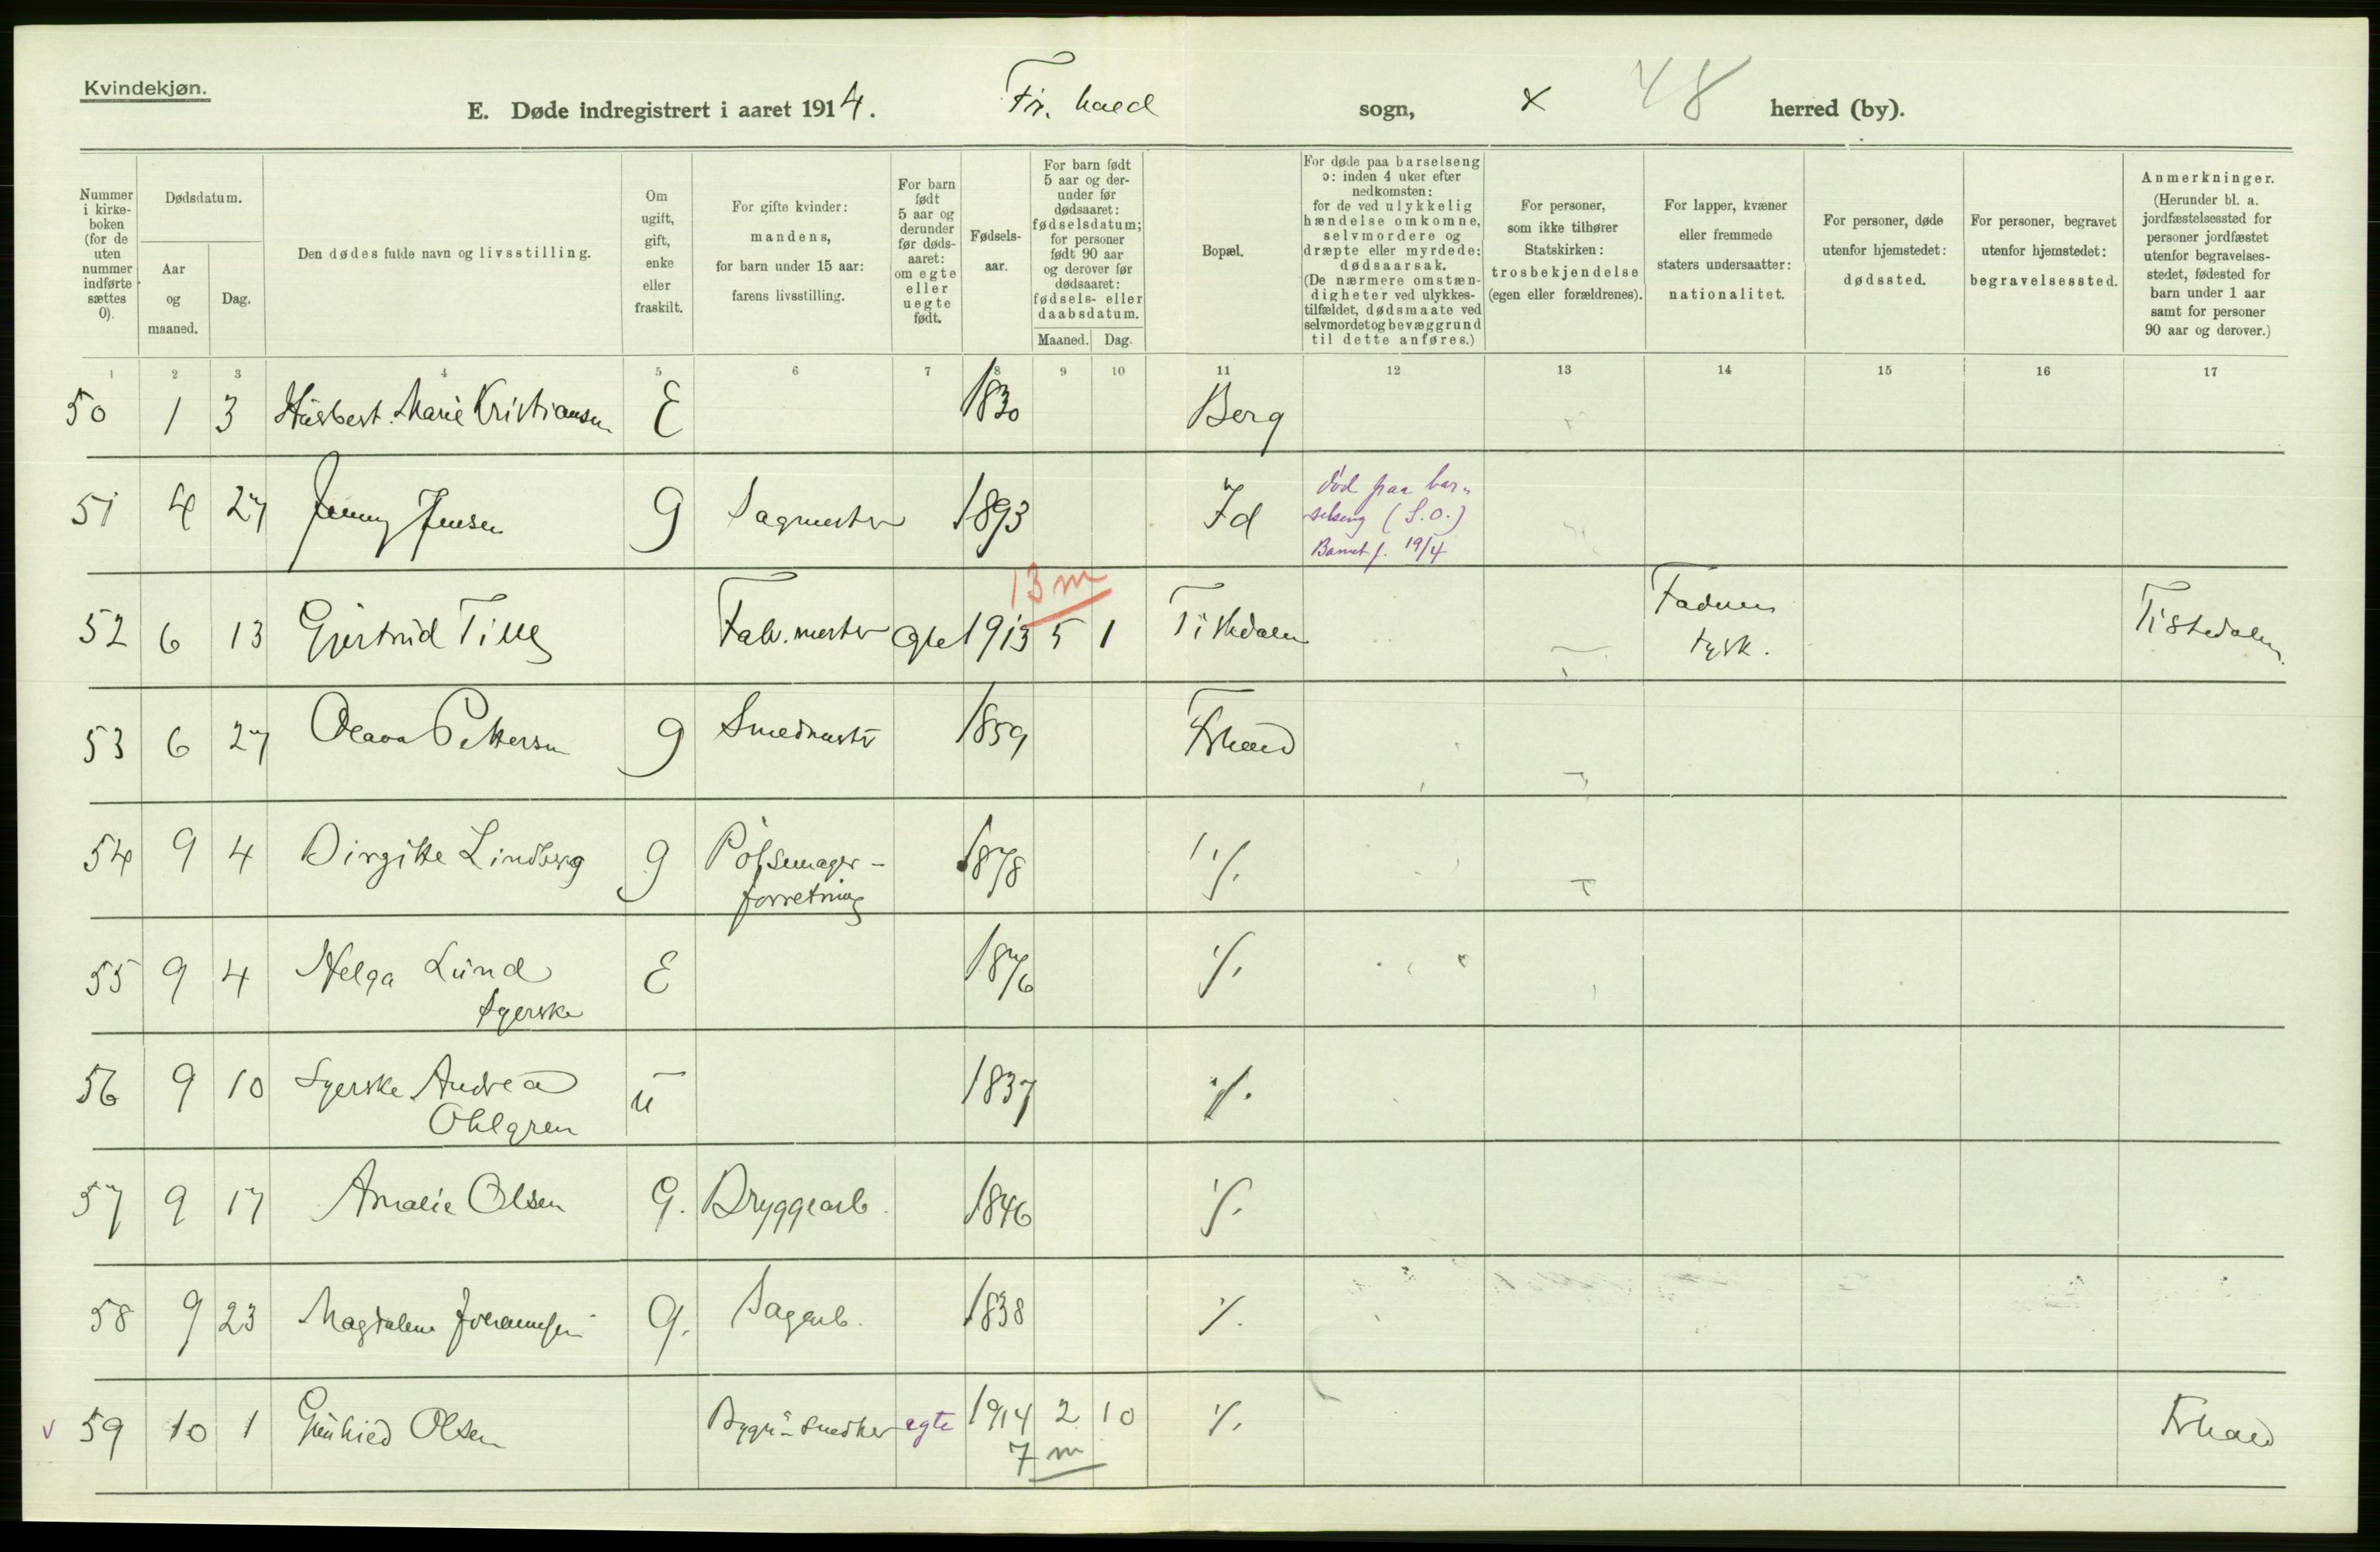 Kvindekjøn.
E. Døde indregistrert i aaret 1914. Fr. hald sogn, x 48 herred (by).
Nummer i kirke- boken (for de uten nummer indførte sættes 0).
Dødsdatum.
Aar og maaned.
Dag.
Den dødes fulde navn og livsstilling.
Om ugift, gift, enke eller fraskilt.
For gifte kvinder: mandens, for barn under 15 aar: farens livsstilling.
For barn født 5 aar og derunder før døds- aaret: om egte eller uegte født.
Fødsels- aar.
For barn født 5 aar og der- under før dødsaaret: fødselsdatum; for personer født 90 aar og derover før dødsaaret: fødsels- eller daabsdatum.
Maaned. Dag.
Bopæl.
For døde paa barselseng ɔ: inden 4 uker efter nedkomsten: for de ved ulykkelig hændelse omkomne, selvmordere og dræpte eller myrdede: dødsaarsak. (De nærmere omstæn- digheter ved ulykkes- tilfældet, dødsmaate ved selvmordet og bevæggrund til dette anføres.)
For personer, som ikke tilhører Statskirken: trosbekjendelse (egen eller forældrenes).
For lapper, kvæner eller fremmede staters undersaatter: nationalitet.
For personer, døde utenfor hjemstedet: dødssted.
For personer, begravet utenfor hjemstedet: begravelsessted.
Anmerkninger. (Herunder bl. a. jordfæstelsessted for personer jordfæstet utenfor begravelses- stedet, fødested for barn under 1 aar samt for personer 90 aar og derover.)
1 2 3 4 5 6 7 8 9 10 11 12 13 14 15 16 17
50 1 3 Husbest. Marie Kristiansen E 1830 Berg
51 4 27 Jenny Jensen g Sagmester 1893 Id død paa bar-
selseng (S.O.)
Barnet f. 19/4
13 m
52 6 13 Gjertrud Tilly Fabr.mester egte 1913 5 1 Tistedalen Faderen
tysk. Tistedalen
53 6 27 Olava Pettersen g Smedmester 1859 Frhald
54 9 4 Birgitte Lindberg g Pølsemager-
forretning 1878 "/.
55 9 4 Helga Lund E 1876 "/.
Syerske
56 9 10 Syerske Andrea
Ohlgren u 1837 "/.
57 9 17 Amalie Olsen g. Bryggearb. 1846 "/.
58 9 23 Magdalene Johannesen g. Sagarb. 1838 "/.
v 59 10 1 Olsen egte 1914 2 10 "/. Frhald
7 m